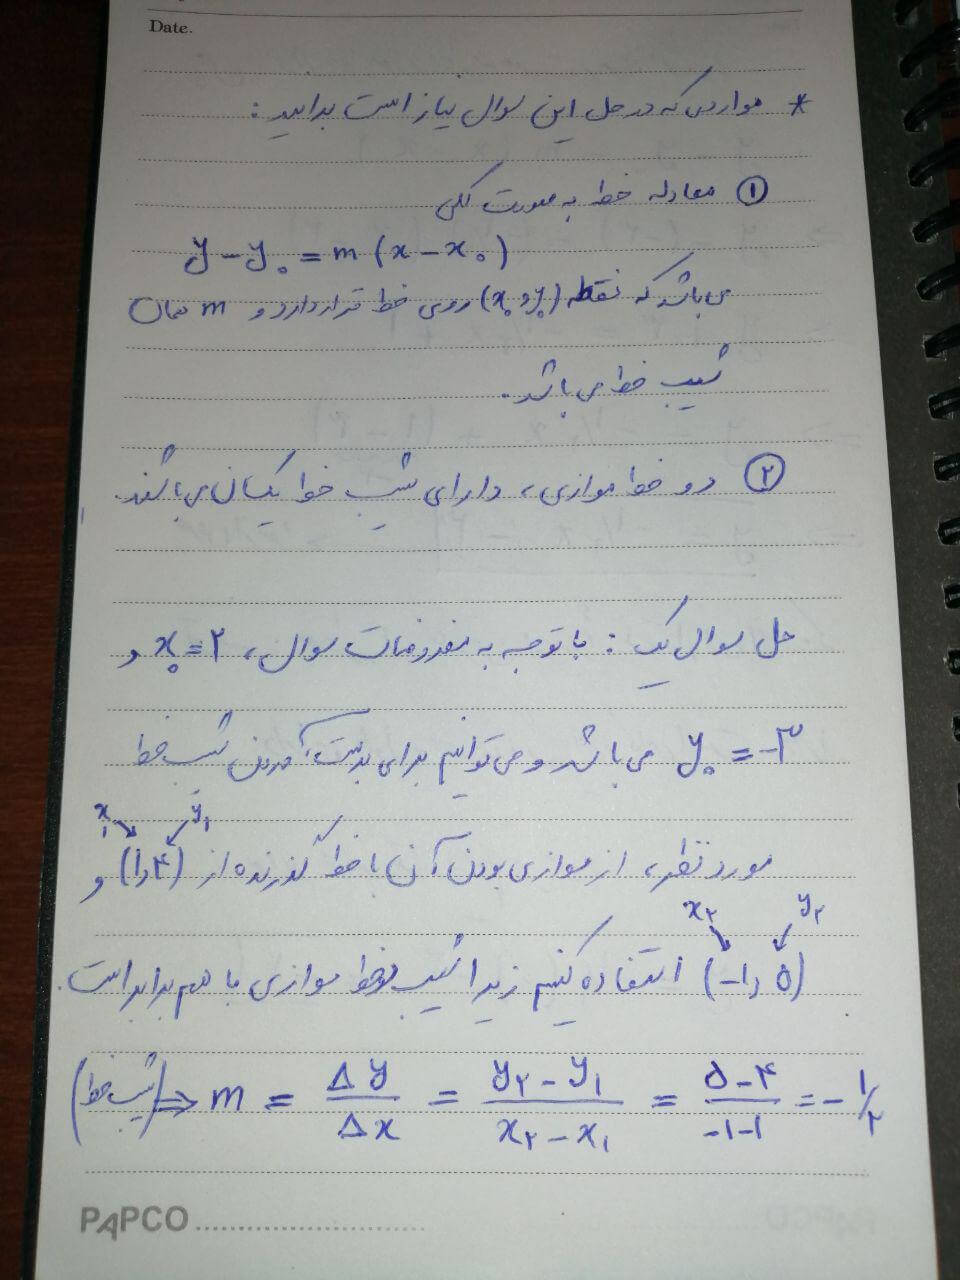 Date.
* مواردی که در حل این سوال نیاز است بدانید:
① معادله خط به صورت کلی
y - y₀ = m (x - x₀)
می‌باشد که نقطه (x₀ و y₀) روی خط قرار دارد و m همان
شیب خط می‌باشد.
② دو خط موازی، دارای شیب خط یکسان می‌باشند.
حل سوال یک: با توجه به مفروضات سوال، x₀ = ۲ و
y₀ = -۳ می‌باشد و می‌توانیم برای بدست آوردن شیب خط
x₁ y₁
مورد نظر، از موازی بودن آن با خط گذرنده از (۱ و ۴) و
x₂ y₂
(-۱ و ۵) استفاده کنیم زیرا شیب دو خط موازی با هم برابر است.
(شیب خط) ⇒ m = Δy/Δx = (y₂ - y₁)/(x₂ - x₁) = (۵ - ۴)/(-۱ - ۱) = -۱/۲
PAPCO